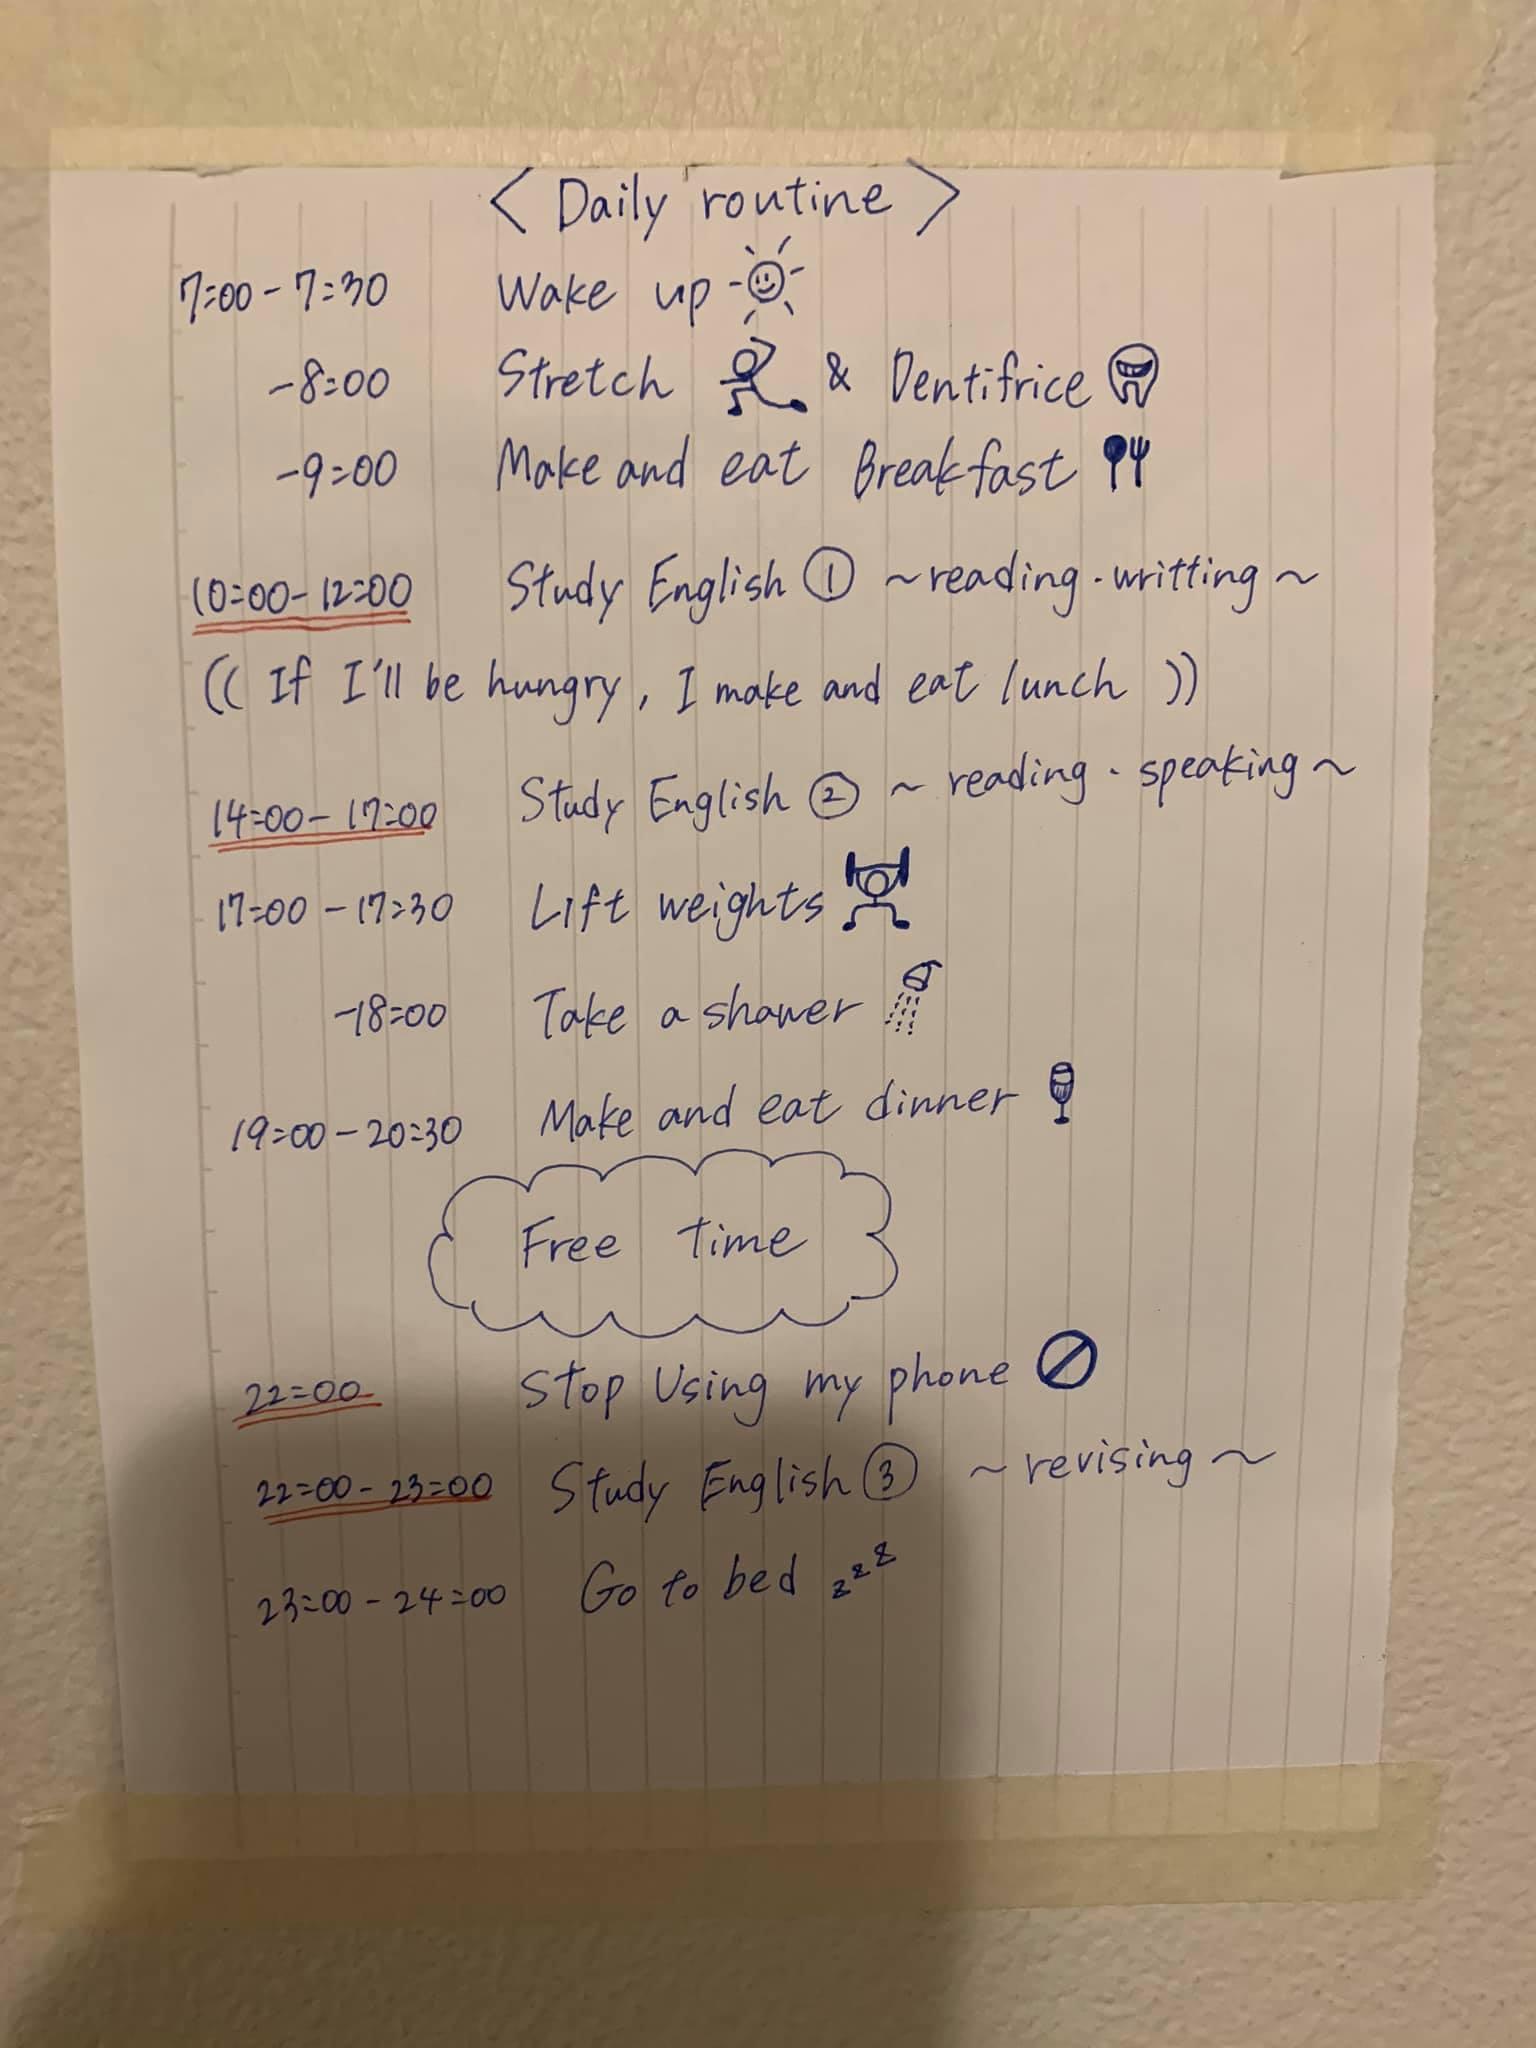 < Daily routine >
7:00 - 7:30 Wake up
- 8:00 Stretch & Dentifrice
- 9:00 Make and eat Breakfast
10:00 - 12:00 Study English ① ~ reading · writting ~
(( If I'll be hungry, I make and eat lunch ))
14:00 - 17:00 Study English ② ~ reading · speaking ~
17:00 - 17:30 Lift weights
- 18:00 Take a shower
19:00 - 20:30 Make and eat dinner
Free time
22:00 Stop Using my phone
22:00 - 23:00 Study English ③ ~ revising ~
23:00 - 24:00 Go to bed zzz